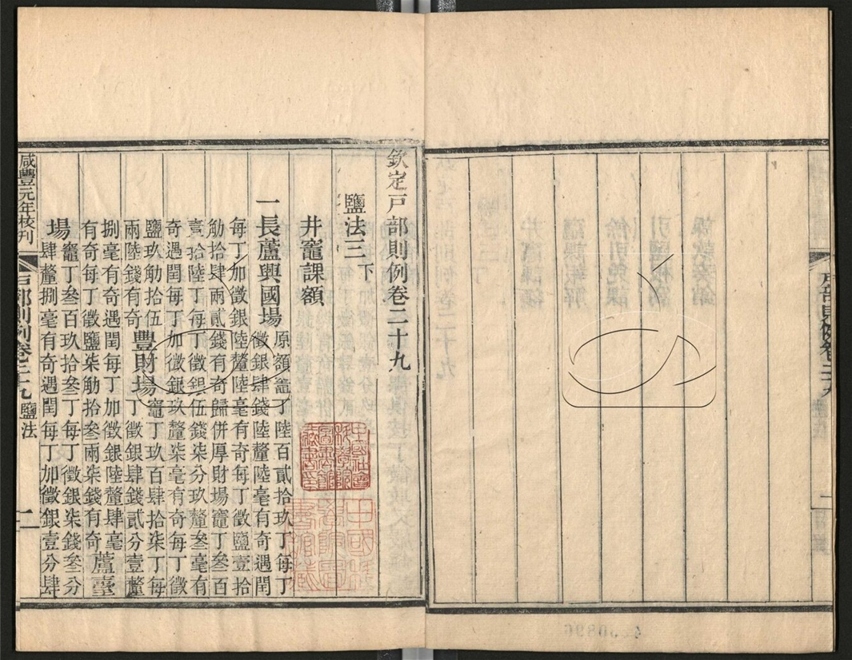 欽定戸部則例卷二十九
鹽法三下
井竈課額
一長蘆興國場原額竈丁陸百貳拾玖丁每丁
徵銀肆錢陸釐陸毫有奇遇閏
每丁加徵銀陸釐陸毫有奇每丁徵鹽壹拾
觔拾肆兩貳錢有奇歸併厚財場竈丁叁百
壹拾陸丁每丁徵銀伍錢柒分玖釐叁毫有
奇遇閏每丁加徵銀玖釐柒毫有奇每丁徵
鹽玖觔拾伍兩陸錢有奇豐財場竈丁玖百肆拾柒丁每
丁徵銀肆錢貳分壹釐
捌毫有奇遇閏每丁加徵銀陸釐肆毫
有奇每丁徵鹽柒觔拾叁兩柒錢有奇蘆臺
場竈丁叁百玖拾叁丁每丁徵銀柒錢叁分
肆釐捌毫有奇遇閏每丁加徵銀壹分肆
咸豐元年校刊
戸部則例卷二十九
鹽法
二